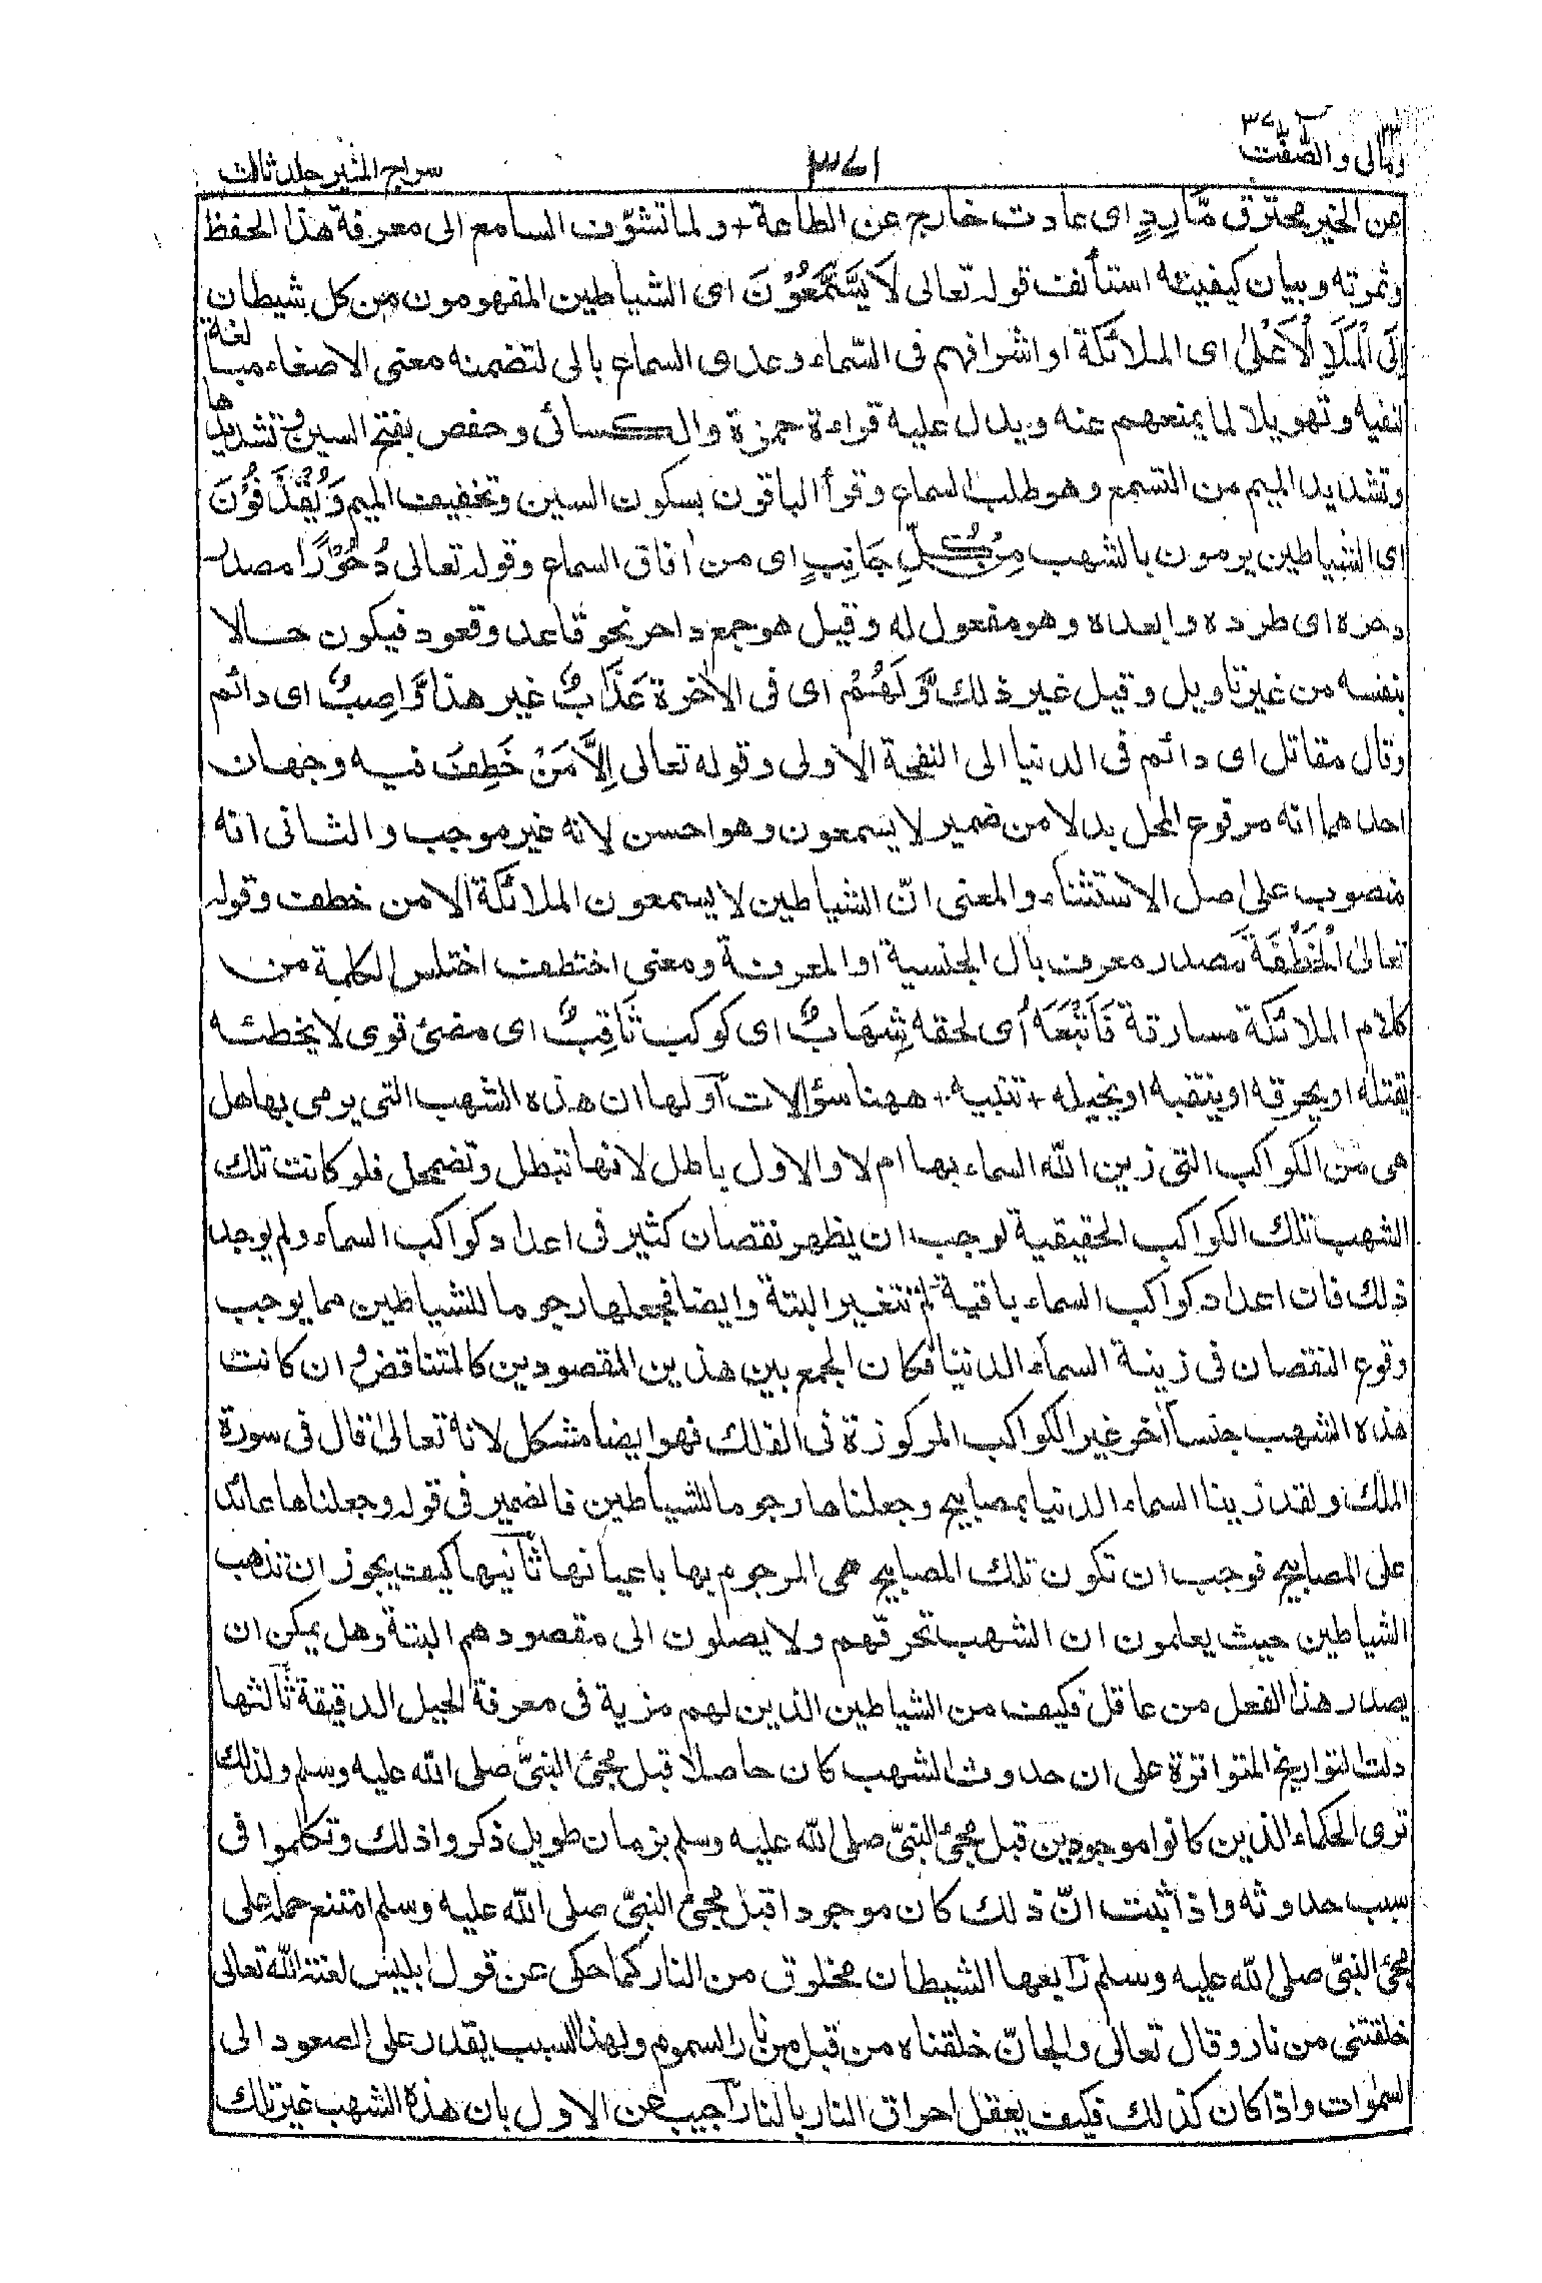 ومالی والصّٰفّٰت ٣٧
٣٧١
سراج المنیر جلد ثالث
عن الخیر محترق مَّارِدٍ ای عات خارج عن الطاعة + ولما تشوّف السامع الی معرفة هذا الحفظ
وثمرته وبیان کیفیته استأنف قوله تعالی لَا یَسَّمَّعُوْنَ ای الشیاطین المفهومون من کل شیطان
اِلَی الْمَلَاِ الْاَعْلٰی ای الملائکة او اشرافهم فی السّماء وعدی السماع بالی لتضمنه معنی الاصغاء مبالغة
لنفیه وتهویلا لما یمنعهم عنه ویدل علیه قراءة حمزة والکسائی وحفص بفتح السین وتشدیدها
وتشدید المیم من التسمع وهو طلب السماع وقرأ الباقون بسکون السین وتخفیف المیم وَیُقْذَفُوْنَ
ای الشیاطین یرمون بالشهب مِنْ کُلِّ جَانِبٍ ای من اٰفاق السماء وقوله تعالی دُحُوْرًا مصدر
دحره ای طرده وابعده وهو مفعول له وقیل هو جمع داحر نحو قاعد وقعود فیکون حالا
بنفسه من غیر تاویل وقیل غیر ذلك وَّلَهُمْ ای فی الاٰخرة عَذَابٌ غیر هذا وَّاصِبٌ ای دائم
وقال مقاتل ای دائم فی الدنیا الی النفخة الاولی وقوله تعالی اِلَّا مَنْ خَطِفَ فیه وجهان
احدهما انه مرفوع المحل بدلا من ضمیر لا یسمعون وهو احسن لانه غیر موجب والثانی انه
منصوب علی اصل الاستثناء والمعنی انّ الشیاطین لا یسمعون الملائکة الا من خطف وقوله
تعالیٰ الْخَطْفَةَ مصدر معرف بأل الجنسیة او المعرفة ومعنی اختطف اختلس الکلمة من
کلام الملائکة مسارقة فَاَتْبَعَهٗ ای لحقه شِهَابٌ ای کوکب ثَاقِبٌ ای مضئ قوی لا یخطئه
یقتله او یحرقه او یثقبه او یخبله + تنبیه + ههنا سؤالات اولها ان هذه الشهب التی یرمی بها هل
هی من الکواکب التی زین الله السماء بها ام لا والاول باطل لانها تبطل وتضمحل فلو کانت تلك
الشهب تلك الکواکب الحقیقیة لوجب ان یظهر نقصان کثیر فی اعداد کواکب السماء ولم یوجد
ذلك فان اعداد کواکب السماء باقیة لم تتغیر البتة وایضا فجعلها رجوما للشیاطین مما یوجب
وقوع النقصان فی زینة السماء الدنیا فکان الجمع بین هذین المقصودین کالمتناقض وان کانت
هذه الشهب جنسا اٰخر غیر الکواکب المرکوزة فی الفلك فهو ایضا مشکل لانه تعالیٰ قال فی سورة
الملك ولقد زینا السماء الدنیا بمصابیح وجعلناها رجوما للشیاطین فالضمیر فی قوله وجعلناها عائد
علی المصابیح فوجب ان تکون تلك المصابیح هی المرجوم بها باعیانها ثانیها کیف یجوز ان تذهب
الشیاطین حیث یعلمون ان الشهب تحرقهم ولا یصلون الی مقصودهم البتة وهل یمکن ان
یصدر هذا الفعل من عاقل فکیف من الشیاطین الذین لهم مزیة فی معرفة الحیل الدقیقة ثالثها
دلت التواریخ المتواترة علی ان حدوث الشهب کان حاصلا قبل مجئ النبیّ صلی الله علیه وسلم ولذلك
تری الحکماء الذین کانوا موجودین قبل مجئ النبیّ صلی الله علیه وسلم بزمان طویل ذکروا ذلك وتکلموا فی
سبب حدوثه واذا ثبت انّ ذلك کان موجودا قبل مجئ النبیّ صلی الله علیه وسلم امتنع حمله علی
مجئ النبیّ صلی الله علیه وسلم رابعها الشیطان مخلوق من النار کما حکی عن قول ابلیس لعنة الله تعالی
خلقتنی من نار وقال تعالی والجانّ خلقناه من قبل من نار السموم ولهذا السبب یقدر علی الصعود الی
السمٰوات واذا کان کذلك فکیف یعقل احراق النار بالنار اجیب عن الاول بان هذه الشهب غیر تلك